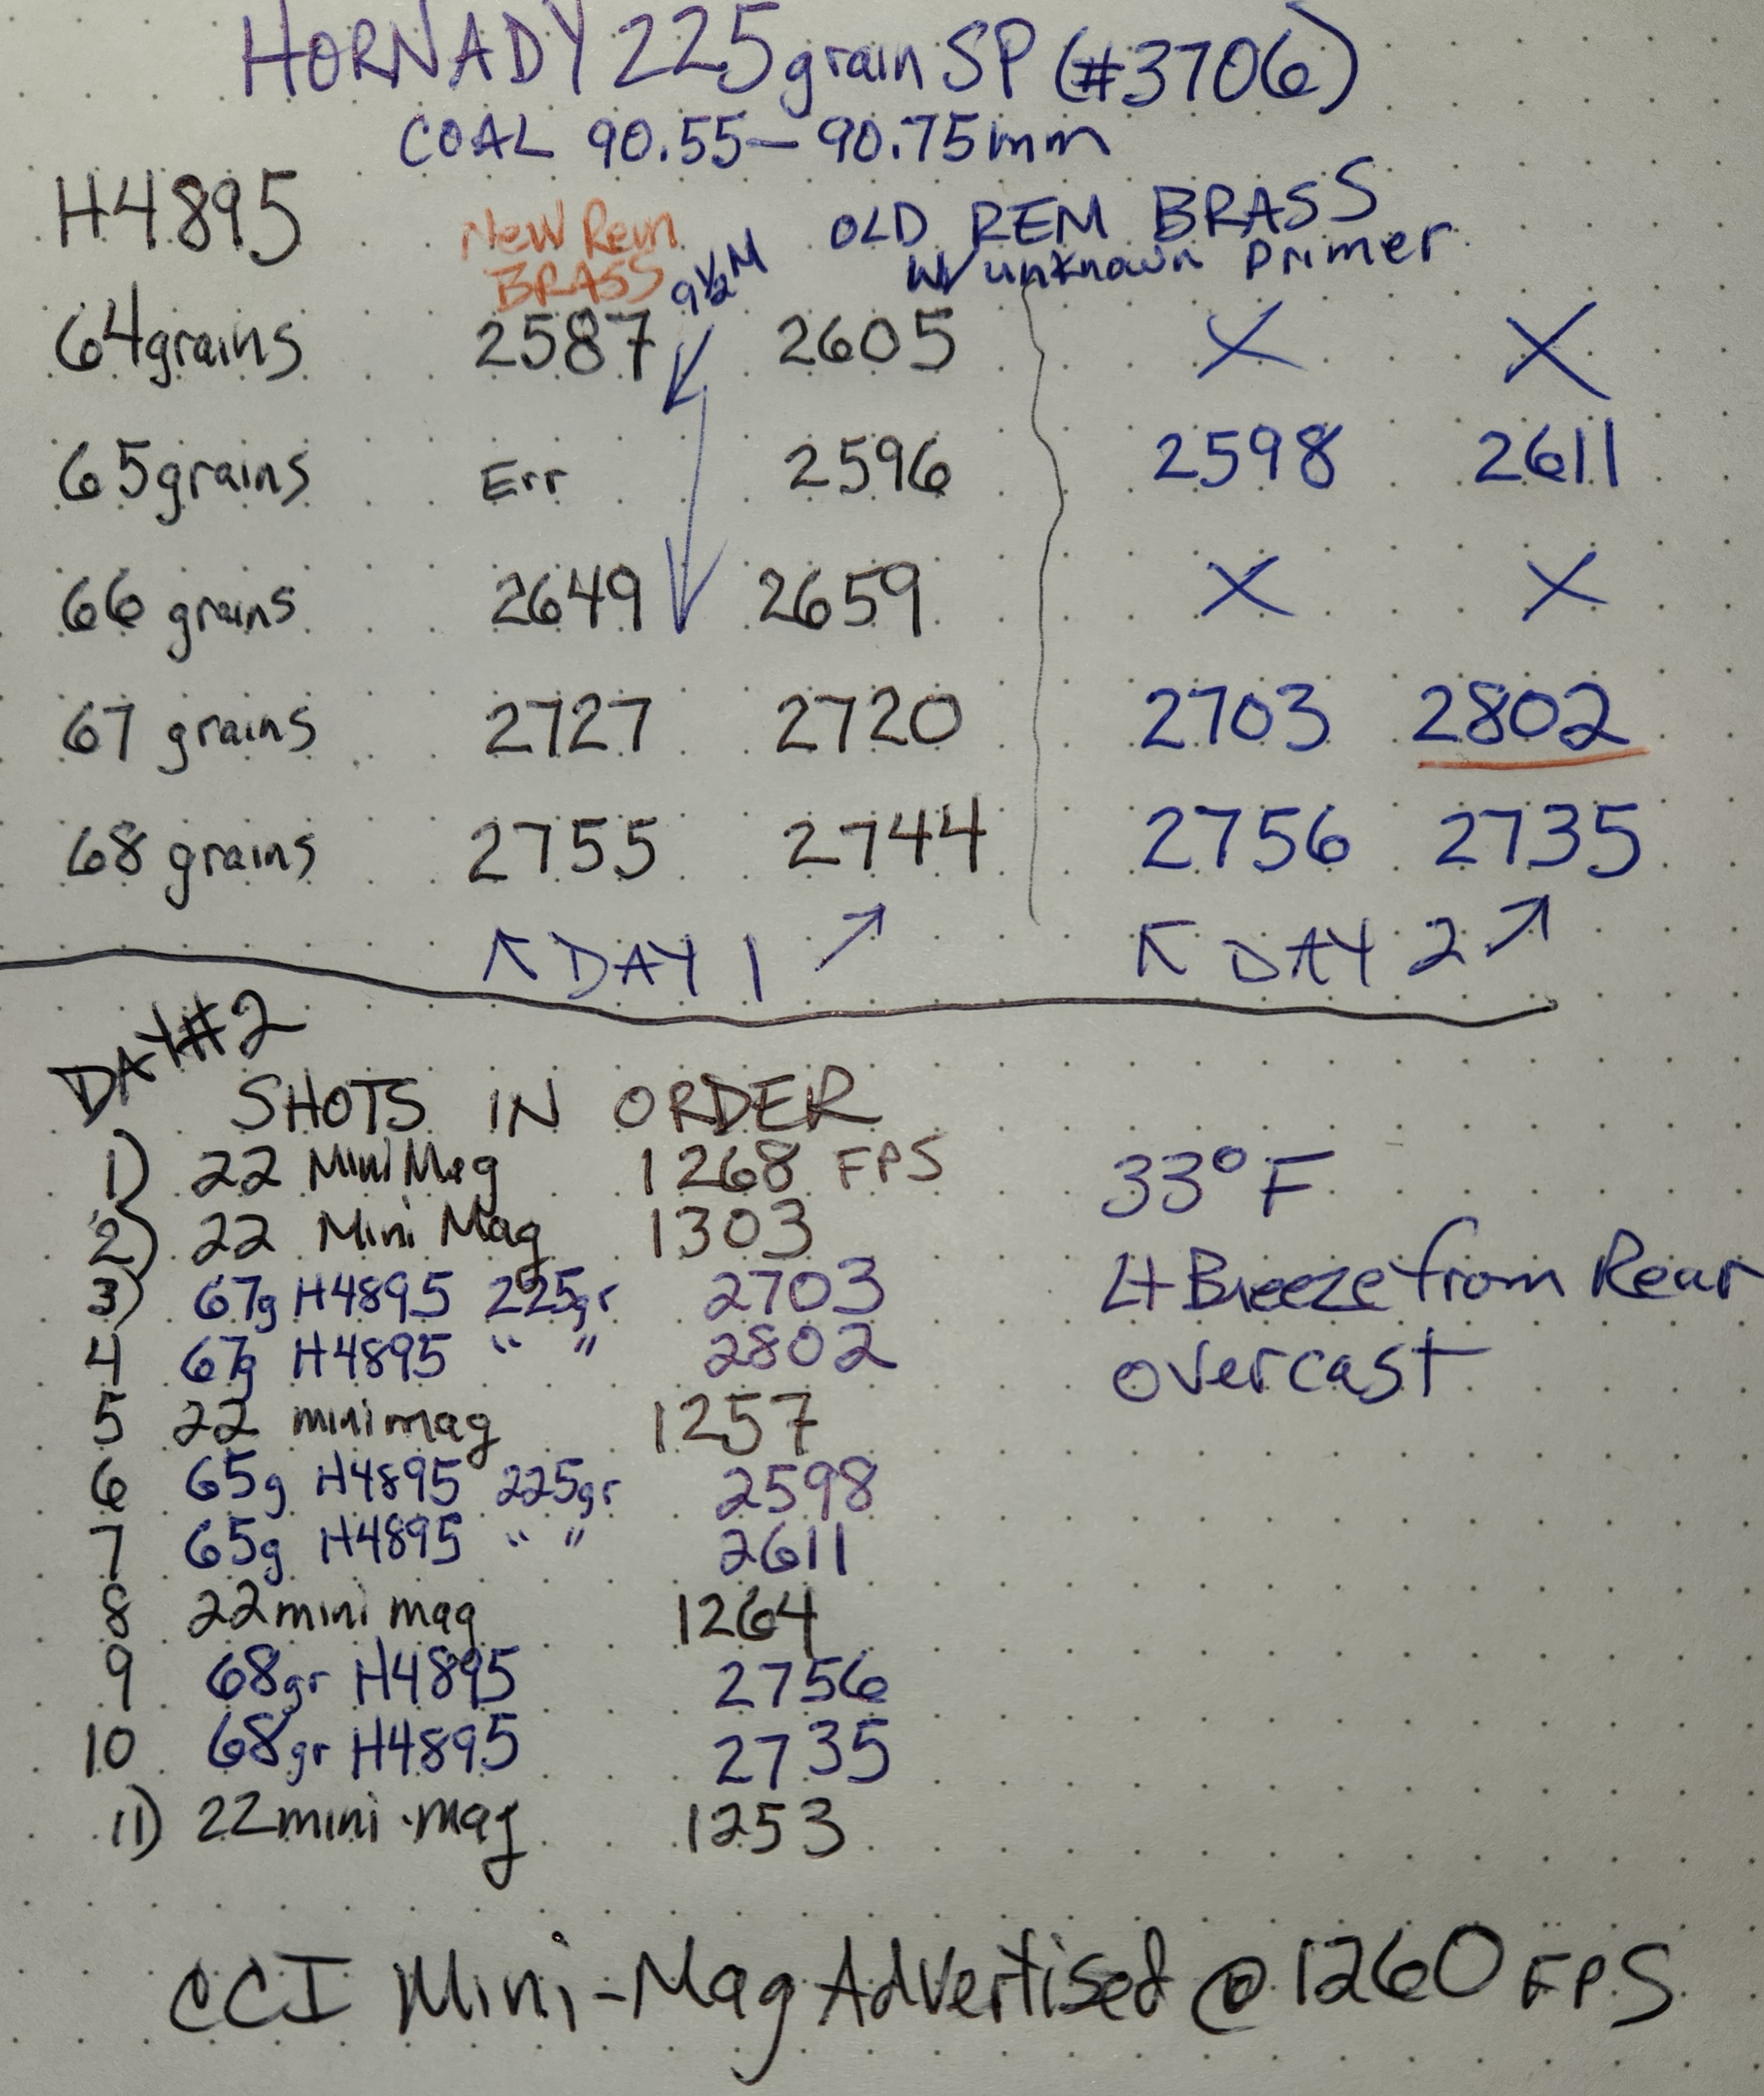 HORNADY 225 grain SP (#3706)
COAL 90.55 - 90.75mm
H4895
New Rem BRASS
9½M
OLD REM BRASS
W/ unknown primer
64grains 2587 2605 X X
65grains Err 2596 2598 2611
66 grains 2649 2659 X X
67 grains 2727 2720 2703 2802
68 grains 2755 2744 2756 2735
↖ DAY 1 ↗ ↖ DAY 2 ↗
DAY #2
SHOTS IN ORDER
1) 22 Mini Mag 1268 FPS
2) 22 Mini Mag 1303
3) 67g H4895 225gr 2703
4 67g H4895 " " 2802
5 22 mini mag 1257
6 65g H4895 225gr 2598
7 65g H4895 " " 2611
8 22 mini mag 1264
9 68gr H4895 2756
10 68gr H4895 2735
11) 22 mini-mag 1253
33°F
Lt Breeze from Rear
overcast
CCI Mini-Mag Advertised @ 1260 FPS